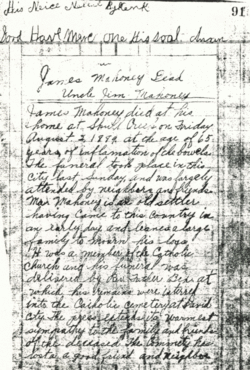 His Neice
91
God Have Mercy one His soal
James Mahoney Dead
Uncle Jim Mahoney
James Mahoney died at his
home at on Friday
August 2 at the age of 65
years of inflamation of the bowels
The funeral took place in this
city last Sunday, and was largely
attended by neighbors and friends
Mr. Mahoney is an old settler
having Came to this Country in
an early day and leaves a large
family to mourn his loss,
He was a member of the Catholic
Church and his funeral was
delivered by Father at
which his remains were
into the Catholic cemetery at David
City. The warmest
sympathy to the family and friends
of the deceased. The
lost a good friend and neighbor